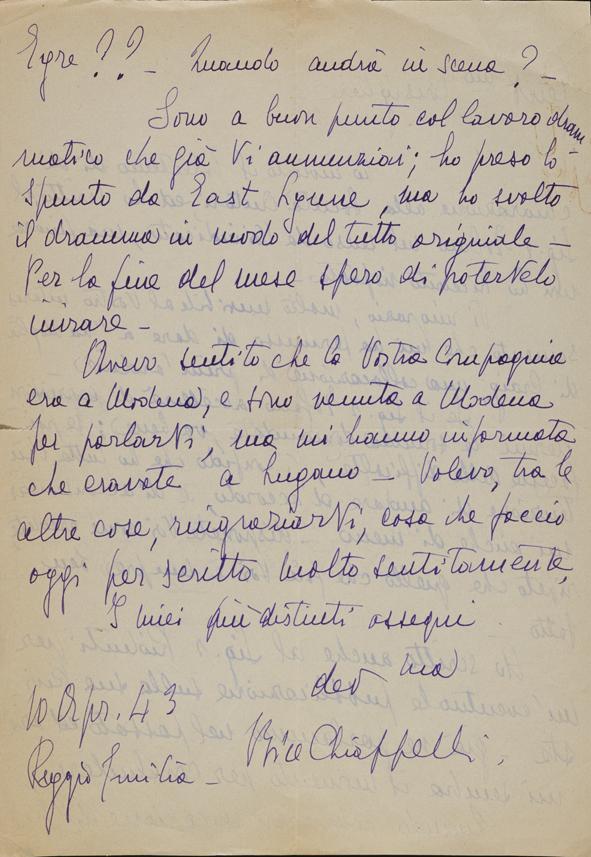 Egre ?? - Quando andrà in scena? -
Sono a buon punto col lavoro dram-
matico che già Vi annunziai; ho preso lo
spunto da East Lynne, ma ho svolto
il dramma in modo del tutto originale -
Per la fine del mese spero di poterVelo
inviare -
Avevo sentito che la Vostra Compagnia
era a Modena, e sono venuta a Modena
per parlarVi, ma mi hanno informata
che eravate a Lugano - Volevo, tra le
altre cose, ringraziarVi, cosa che faccio
oggi per scritto molto sentitamente,
I miei più distinti ossequi
dev ma
10 Apr. 43
Bice Chiappelli.
Reggio Emilia -